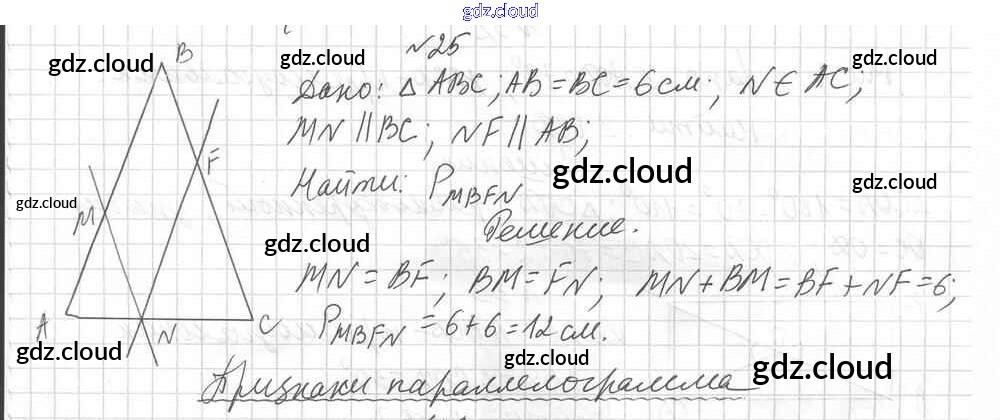 gdz.cloud
№25
Дано: △ ABC; AB = BC = 6 см; N ∈ AC;
MN || BC; NF || AB;
Найти: P_MBFN
Решение.
MN = BF; BM = FN; MN + BM = BF + NF = 6;
P_MBFN = 6 + 6 = 12 см.
Признаки параллелограмма
B
F
M
A
N
C
gdz.cloud
gdz.cloud
gdz.cloud
gdz.cloud
gdz.cloud
gdz.cloud
gdz.cloud
gdz.cloud
gdz.cloud
gdz.cloud
gdz.cloud
gdz.cloud